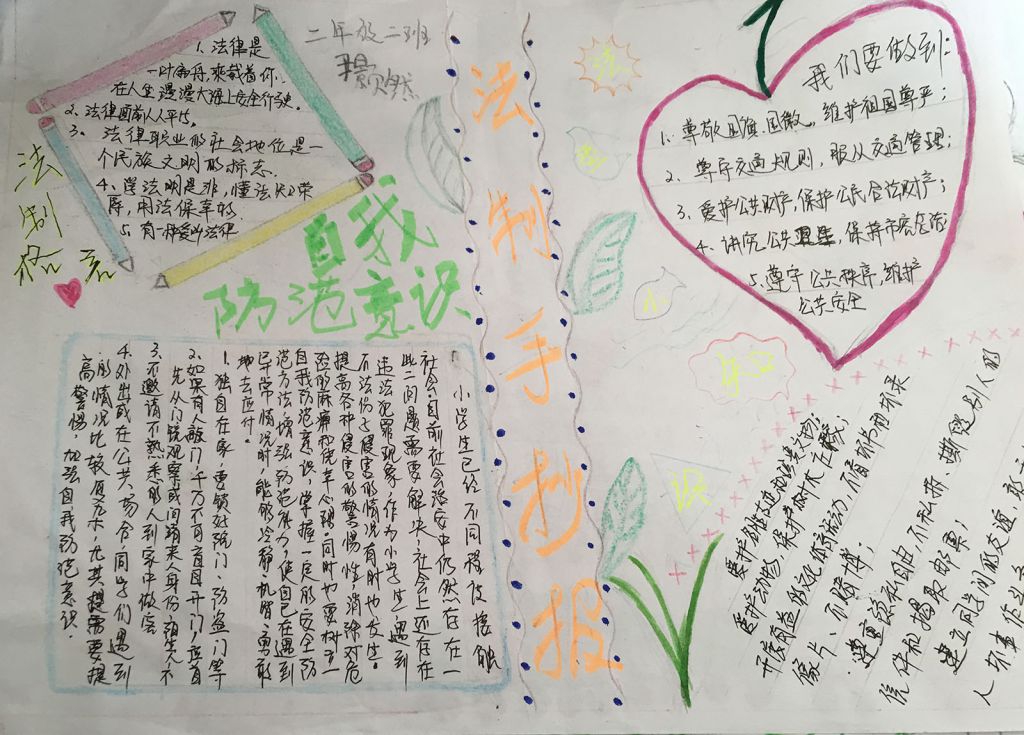 二年级二班
法制格言
1. 法律是
一叶扁舟,来载着你
在人生漫漫大海上安全行驶。
2. 法律面前人人平等。
3. 法律职业的社会地位是一
个民族文明的标志
4、学法明是非,懂法知荣
辱,用法保幸福
5. 有一种爱叫法律
自我
防范意识
1. 小学生已经不同程度接触
社会,目前社会治安中仍然存在在一
此二问题需要解决,社会上还存在
违法犯罪现象,作为小学生遇到
不法伤害侵害的情况有时也发生。
提高各种侵害的警惕性,消除对危
险的麻痹和侥幸心理,同时也要树立
自我防范意识,掌握一定的安全防
范方法,增强防范能力,使自己在遇到
异常情况时,能够冷静、机智、勇敢
地去应付。
1. 独自在家,要锁好院门、防盗门等
2. 如果有人敲门,千万不可盲目开门,应首
先从门镜观察或问清来人身份
3. 不邀请不熟悉的人到家中做客
4. 外出或在公共场合同学们遇到
的情况比较复杂,尤其提需要提
高警惕,加强自我防范意识。
法制手抄报
法
意
识
我们要做到:
1. 尊敬国旗、国徽,维护祖国尊严;
2. 遵守交通规则,服从交通管理;
3. 爱护公共财产,保护公民合法财产;
4. 讲究公共卫生,保持市容整洁
5. 遵守公共秩序,维护
公共安全
爱护动物,保护树木庄稼;
开展有益的文体活动,不看
像片、不赌博;
尊重
信件和揭取邮票;
建立同学间的友谊,